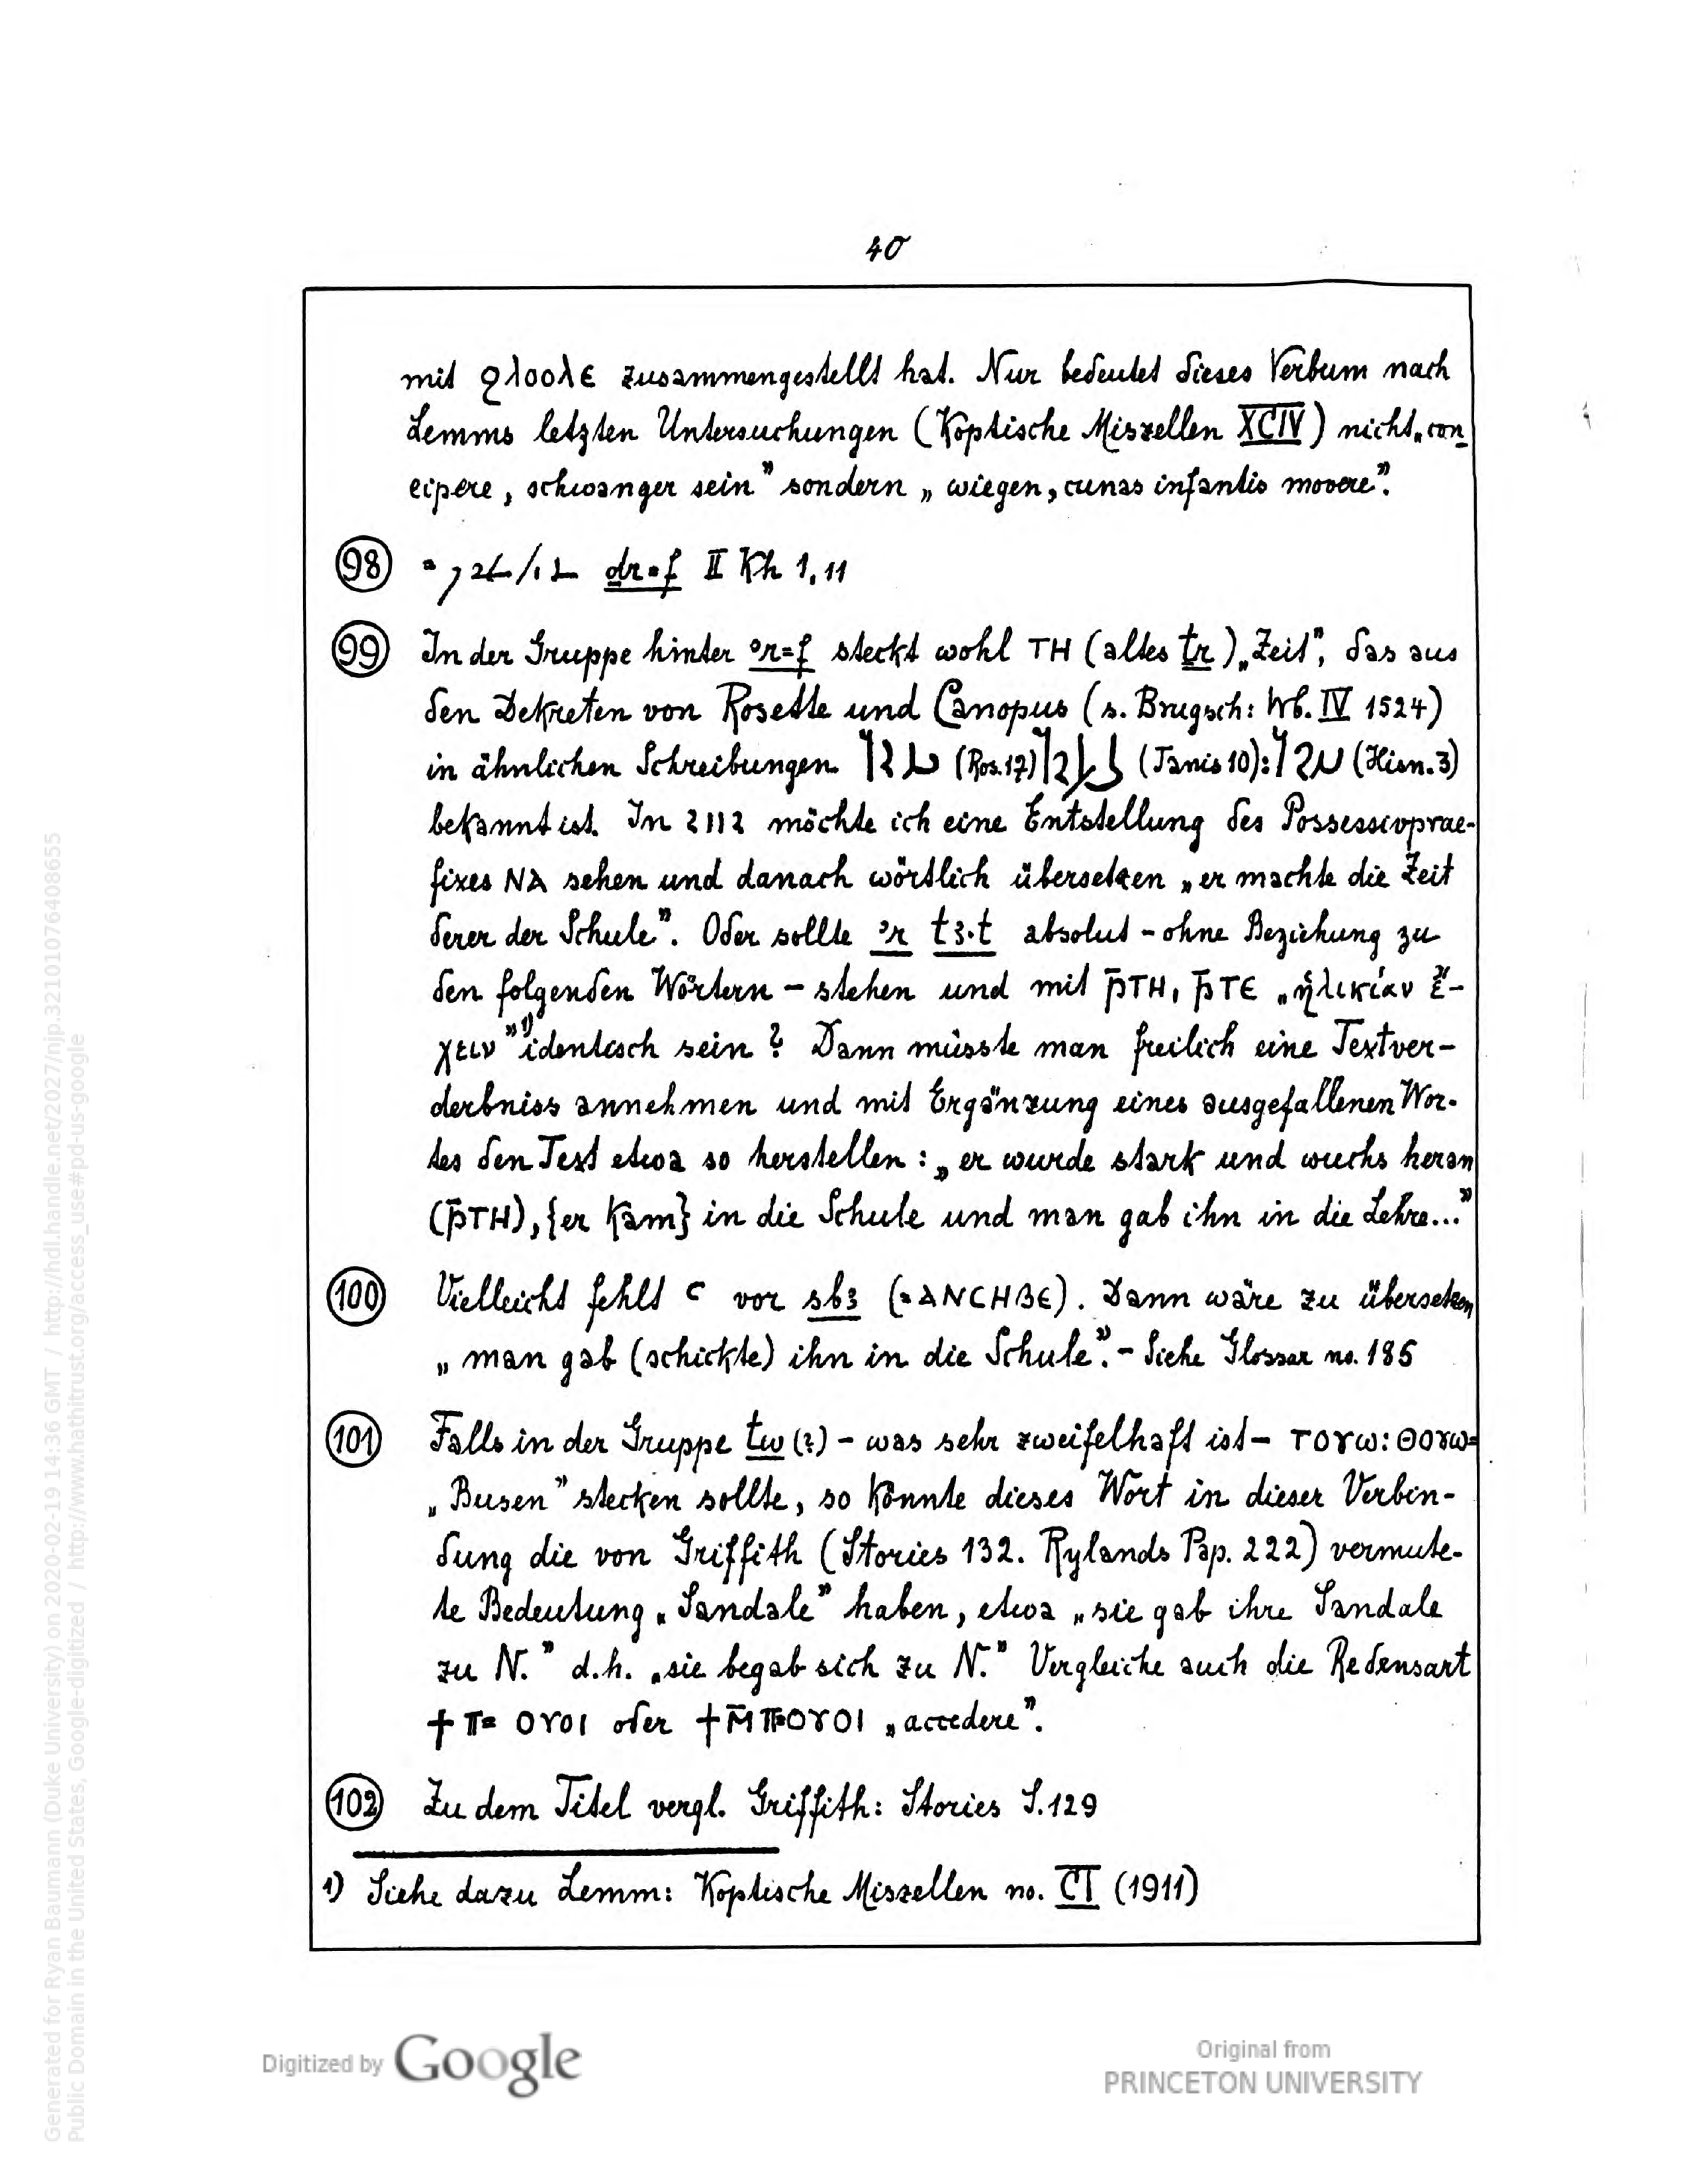 40
mit ϩⲗⲟⲟⲗⲉ zusammengestellt hat. Nur bedeutet dieses Verbum nach
Lemms letzten Untersuchungen (Koptische Miszellen XCIV) nicht „con
cipere, schwanger sein” sondern „ wiegen, cunas infantis movere”.
98 = dr=f II Kh 1,11
99 In der Gruppe hinter ꜥr=f steckt wohl ⲧⲏ (altes tr) „Zeit”, das aus
den Dekreten von Rosette und Canopus (s. Brugsch: Wb. IV 1524)
in ähnlichen Schreibungen (Ros.17) (Tanis 10): (Hisn. 3)
bekannt ist. In möchte ich eine Entstellung des Possessivprae-
fixes ⲛⲁ sehen und danach wörtlich übersetzen „er machte die Zeit
derer der Schule”. Oder sollte ꜥr tꜣ·t absolut – ohne Beziehung zu
den folgenden Wörtern – stehen und mit ⲣ̄ⲧⲏ, ⲣ̄ⲧⲉ „ἡλικίαν ἔ-
χειν”¹⁾ identisch sein? Dann müsste man freilich eine Textver-
derbniss annehmen und mit Ergänzung eines ausgefallenen Wor-
tes den Text etwa so herstellen: „er wurde stark und wuchs heran
(ⲣ̄ⲧⲏ), {er kam} in die Schule und man gab ihn in die Lehre...”
100 Vielleicht fehlt ⲥ vor sbꜣ (=ⲁⲛⲥⲏⲃⲉ). Dann wäre zu übersetzen
„ man gab (schickte) ihn in die Schule”. – Siehe Glossar no. 185
101 Falls in der Gruppe tw (?) – was sehr zweifelhaft ist – ⲧⲟⲩⲱ: ⲑⲟⲩⲱ=
„Busen” stecken sollte, so könnte dieses Wort in dieser Verbin-
dung die von Griffith (Stories 132. Rylands Pap. 222) vermute-
te Bedeutung „Sandale” haben, etwa „sie gab ihre Sandale
zu N.” d.h. „sie begab sich zu N.” Vergleiche auch die Redensart
ϯ ⲡ= ⲟⲩⲟⲓ oder ϯ ⲙ̄ ⲡ=ⲟⲩⲟⲓ „accedere”.
102 Zu dem Titel vergl. Griffith: Stories S. 129
1) Siehe dazu Lemm: Koptische Miszellen no. CI (1911)
Generated for Ryan Baumann (Duke University) on 2020-02-19 14:36 GMT / http://hdl.handle.net/2027/njp.32101076408655
Public Domain in the United States, Google-digitized / http://www.hathitrust.org/access_use#pd-us-google
Digitized by Google
Original from
PRINCETON UNIVERSITY